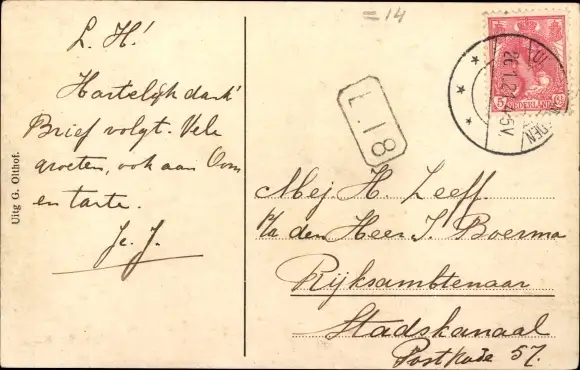 = 14
L. H.!
Hartelijk dank!
Brief volgt. Vele
groeten, ook aan Oom
en tante.
Je. J.
Uitg G. Olthof.
L.18
26.1.2 4-5V
DEN
5 NEDERLAND
Mej. H. Zeeff
p/a den Heer J. Boerma
Rijksambtenaar
Stadskanaal
Postkade 57.